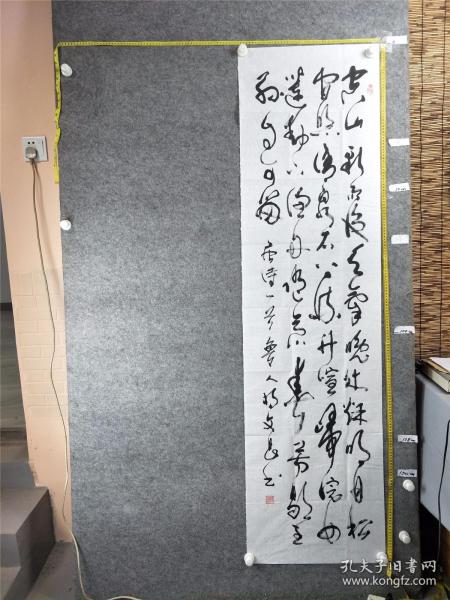 空山新雨後天氣晚來秋明月松
間照清泉石上流竹喧歸浣女
蓮動下漁舟隨意春芳歇王
孫自可留 唐诗一首 书
孔夫子旧书网
www.kongfz.com